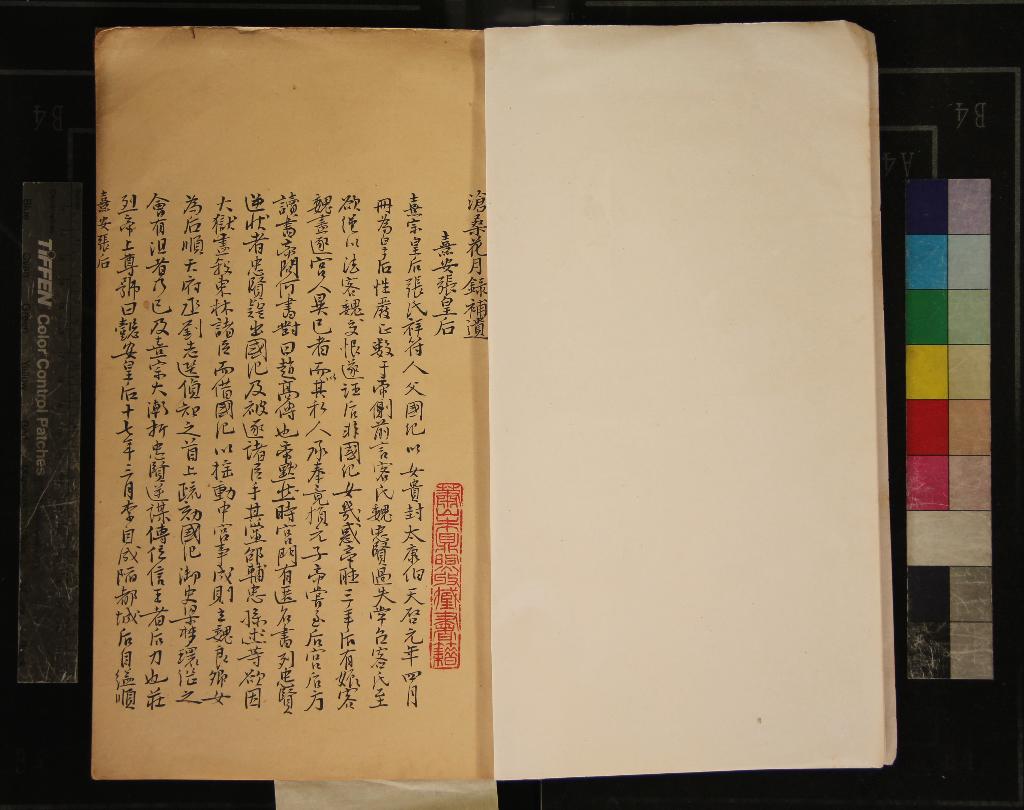 滄桑花月錄補遺
熹安張皇后
熹宗皇后張氏祥符人父國紀以女貴封太康伯天啓元年四月
冊為皇后性嚴正數于帝側前言客氏魏忠賢過失嘗召客氏至
欲繩以法客魏交恨遂誣后非國紀女幾惑帝聽三年后有娠客
魏盡逐宮人異己者而以其私人承奉竟損元子帝嘗至后宮后方
讀書帝問何書對曰趙高傳也帝默然時宮門有匿名書列忠賢
逆狀者忠賢疑出國紀及被逐諸臣手其黨邵輔忠孫述等欲因
大獄盡殺東林諸臣而借國紀以搖動中宮事成則立魏良卿女
為后順天府丞劉志選偵知之首上疏劾國紀御史梁夢環從之
會有沮者乃已及熹宗大漸折忠賢逆謀傳位信王者后力也莊
烈帝上尊號曰懿安皇后十七年三月李自成陷都城后自縊順
熹安張后
蕭山朱鼎煦收藏書籍
TIFFEN Color Control Patches
B4
B4
A4